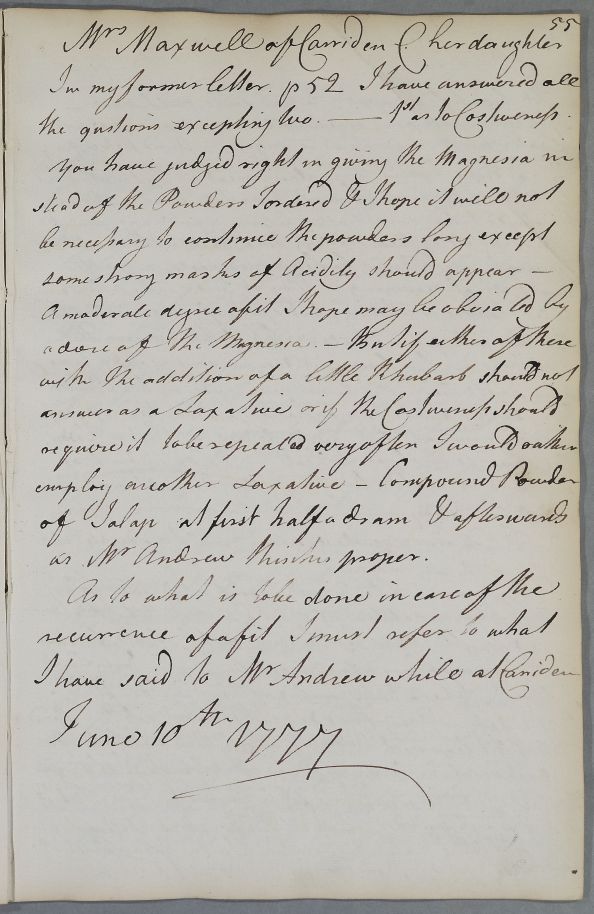 55
Mrs Maxwell of Carriden C. her daughter
In my former letter. p 52 I have answered all
the qustions excepting two. — 1st as to Costiveness.
You have judged right in giving the Magnesia in
stead of the Powders I ordered & I hope it will not
be necessary to continue the powders long except
some strong marks of Acidity should appear —
A moderate degree of it I hope may be obviated by
a dose of the Magnesia. — But if either of these
with the addition of a little Rhubarb should not
answer as a Laxative or if the Costiveness should
require it to be repeated very often I would rather
employ another Laxative – Compound Powder
of Jalap at first half a dram & afterwards
as Mr Andrew thinks proper.
As to what is to be done in case of the
recurrence of a fit I must refer to what
I have said to Mr Andrew while at Carriden
June 10th 1777